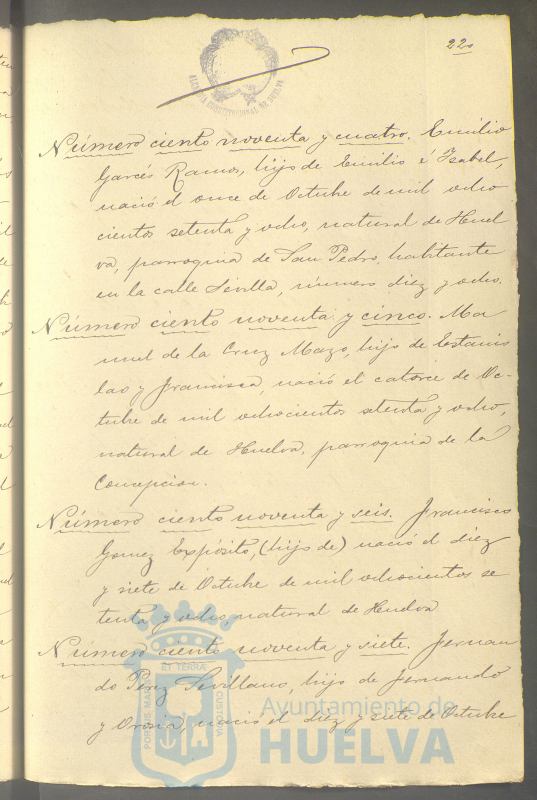 22
ALCALDIA CONSTITUCIONAL DE HUELVA
Número ciento noventa y cuatro. Emilio
Garcés Ramos, hijo de Emilio é Isabel,
nació el once de Octubre de mil ocho
cientos setenta y ocho, natural de Huel
va, parroquia de San Pedro, habitante
en la calle Sevilla, número diez y ocho.
Número ciento noventa y cinco. Ma
nuel de la Cruz Mazo, hijo de Estanis
lao y Francisca, nació el catorce de Oc-
tubre de mil ochocientos setenta y ocho,
natural de Huelva, parroquia de la
Concepcion.
Número ciento noventa y seis. Francisco
Gomez Expósito, (hijo de) nació el diez
y siete de Octubre de mil ochocientos se
tenta y ocho, natural de Huelva
Número ciento noventa y siete. Fernan
do Pérez Sevillano, hijo de Fernando
y Orosia, nació el diez y siete de Octubre
PORTUS MARIS ET TERRÆ CUSTODIA
Ayuntamiento de
HUELVA